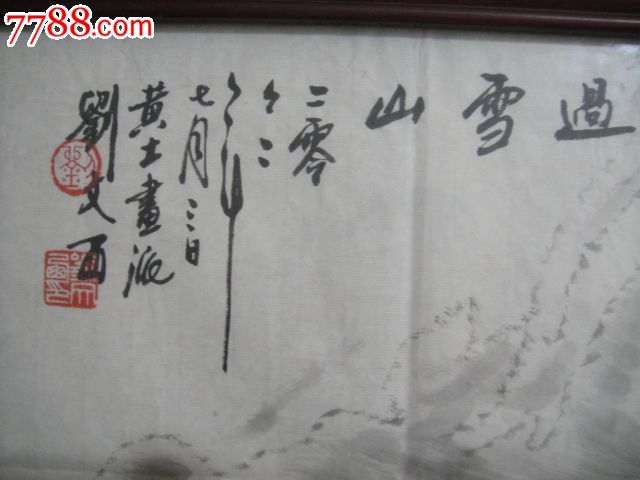 7788.com
過雪山
二零
年
七月三日
黄土畫派
劉文西